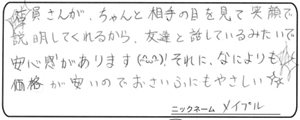 店員さんが、ちゃんと相手の目を見て笑顔で
説明してくれるから、友達と話しているみたいで
安心感があります(^◡^)!それに、なによりも
価格が安いのでおさいふにもやさしい☆☆
ニックネーム メイプル